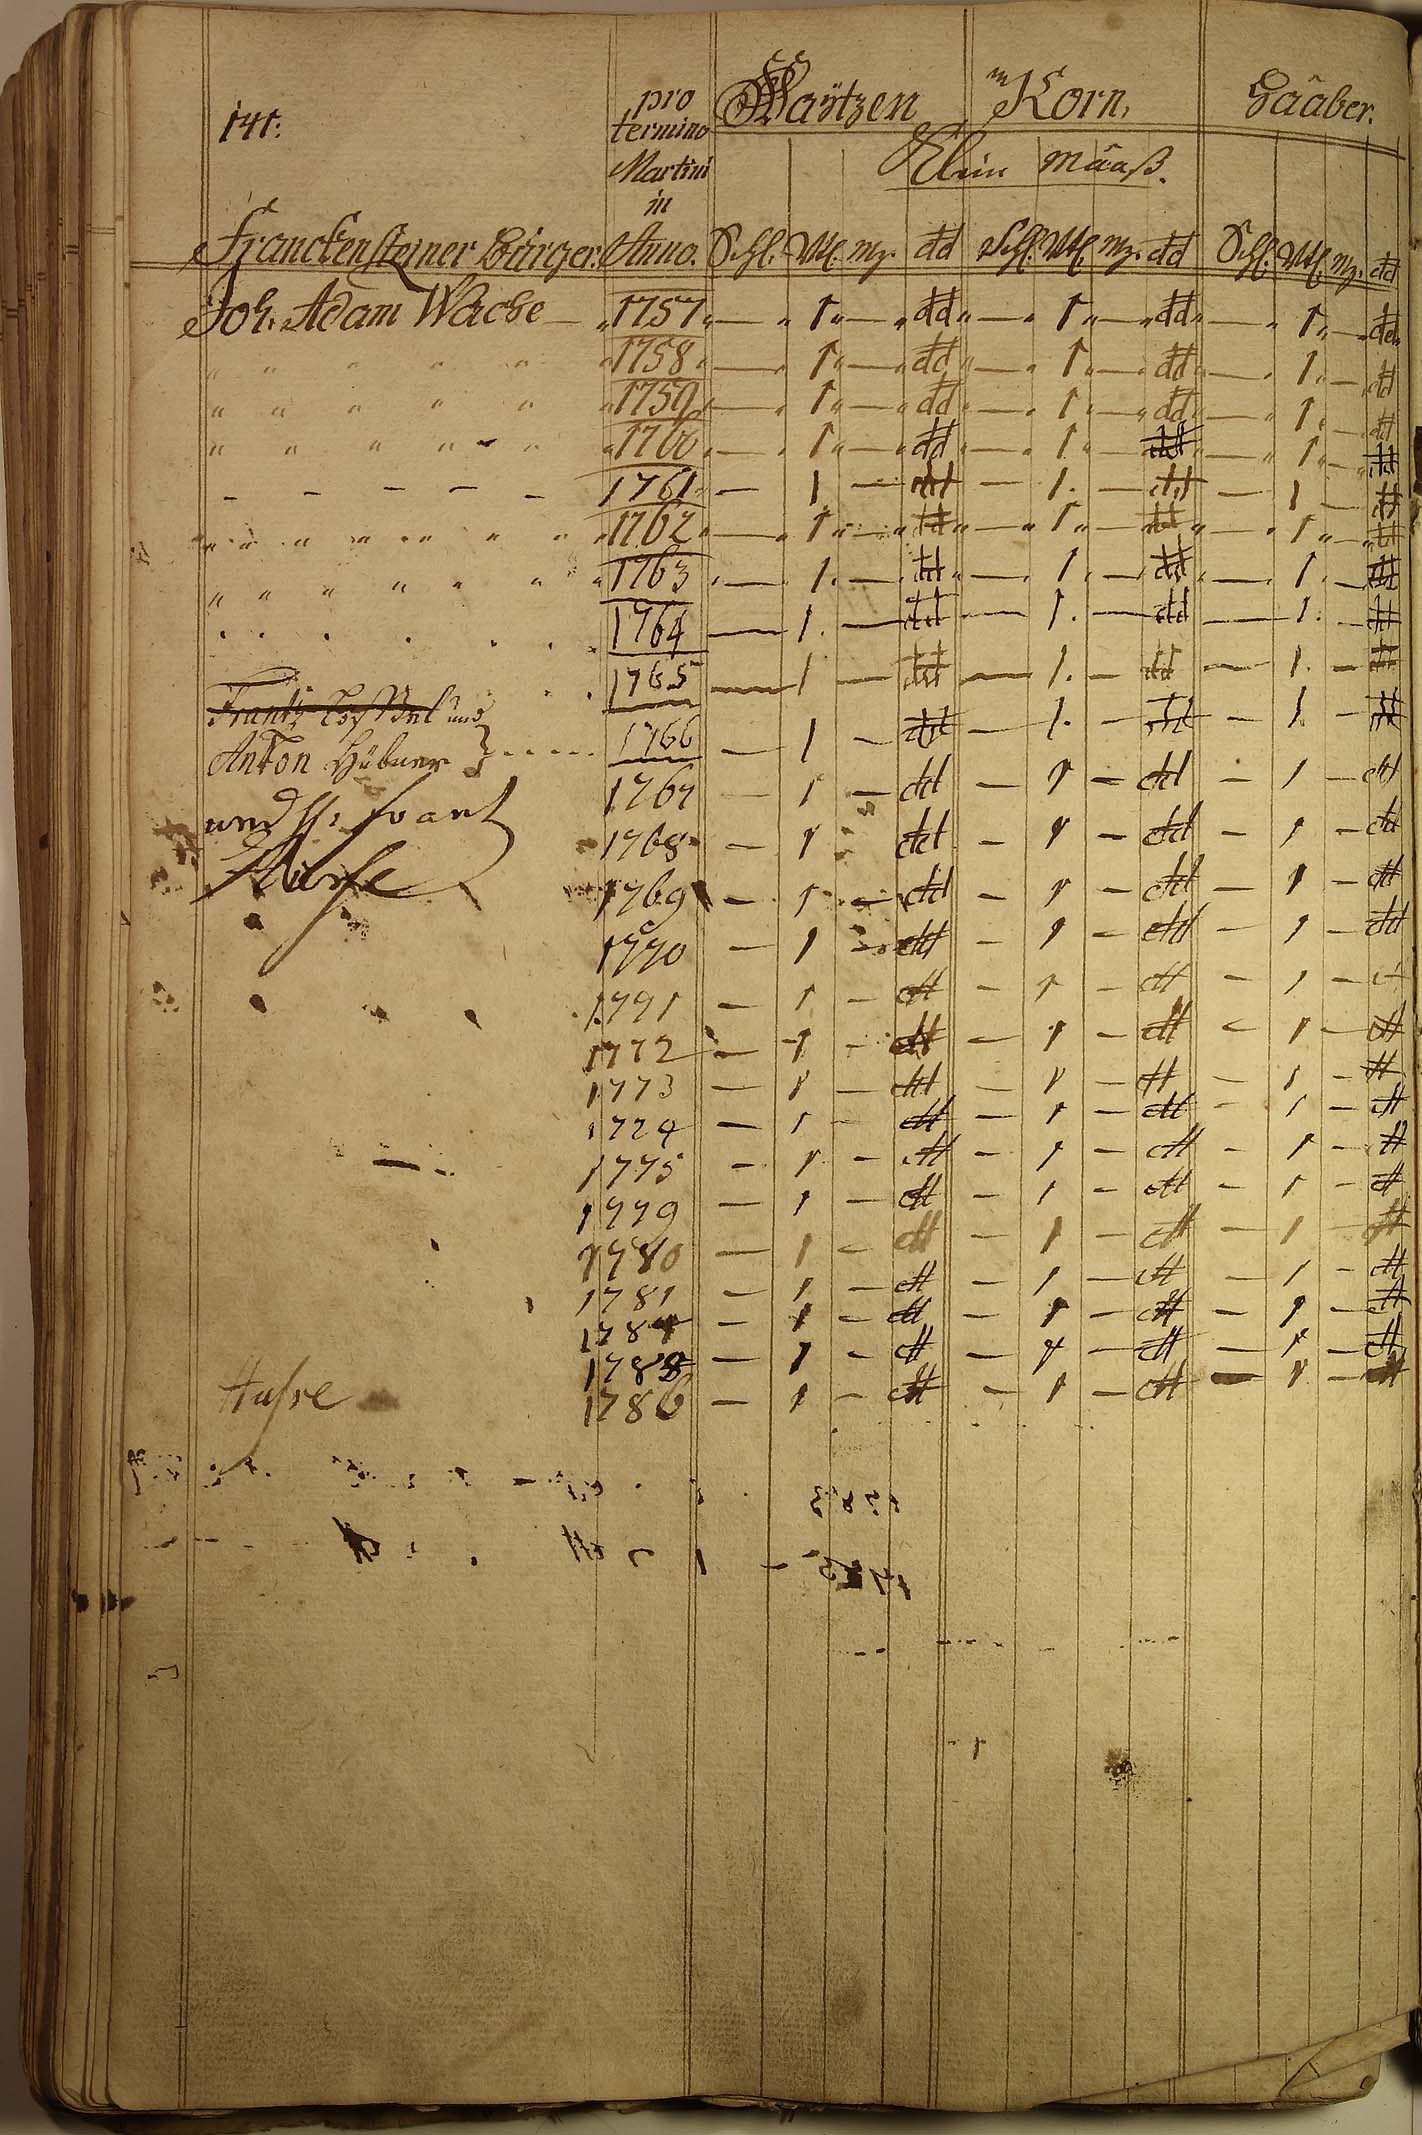 141.
pro termino Martini in Anno.
Waÿtzen Korn, Haaber.
Klein Maaß.
Franckensteiner Bürger. Schl. Vtl. mz. dd Schl. Vtl. mz. dd Schl. Vtl. mz. dd
Joh. Adam Wache — 1757 — 1 — dd — 1 — dd — 1 — dd
" " " " " 1758 — 1 — dd — 1 — dd — 1 — dd
" " " " " 1759 — 1 — dd — 1 — dd — 1 — dd
" " " " " 1760 — 1 — dd — 1 — dd — 1 — dd
- - - - - 1761 — 1 — dd — 1. — dd — 1 — dd
" " " " " 1762 — 1 — dd — 1 — dd — 1 — dd
" " " " " 1763 — 1. — dd — 1 — dd — 1 — dd
1764 — 1. — dd — 1. — dd — 1. — dd
1765 — 1 — dd — 1. — dd — 1. — dd
Frantz und
Anton Hübner } 1766 — 1 — dd — 1. — dd — 1 — dd
1767 — 1 — dd — 1 — dd — 1 — dd
und
1768 — 1 — dd — 1 — dd — 1 — dd
1769 — 1 — dd — 1 — dd — 1 — dd
1770 — 1 — dd — 1 — dd — 1 — dd
1771 — 1 — dd — 1 — dd — 1 — dd
1772 — 1 — dd — 1 — dd — 1 — dd
1773 — 1 — dd — 1 — dd — 1 — dd
1774 — 1 — dd — 1 — dd — 1 — dd
1775 — 1 — dd — 1 — dd — 1 — dd
1779 — 1 — dd — 1 — dd — 1 — dd
1780 — 1 — dd — 1 — dd — 1 — dd
1781 — 1 — dd — 1 — dd — 1 — dd
1784 — 1 — dd — 1 — dd — 1 — dd
1788 — 1 — dd — 1 — dd — 1 — dd
1786 — 1 — dd — 1 — dd — 1 — dd